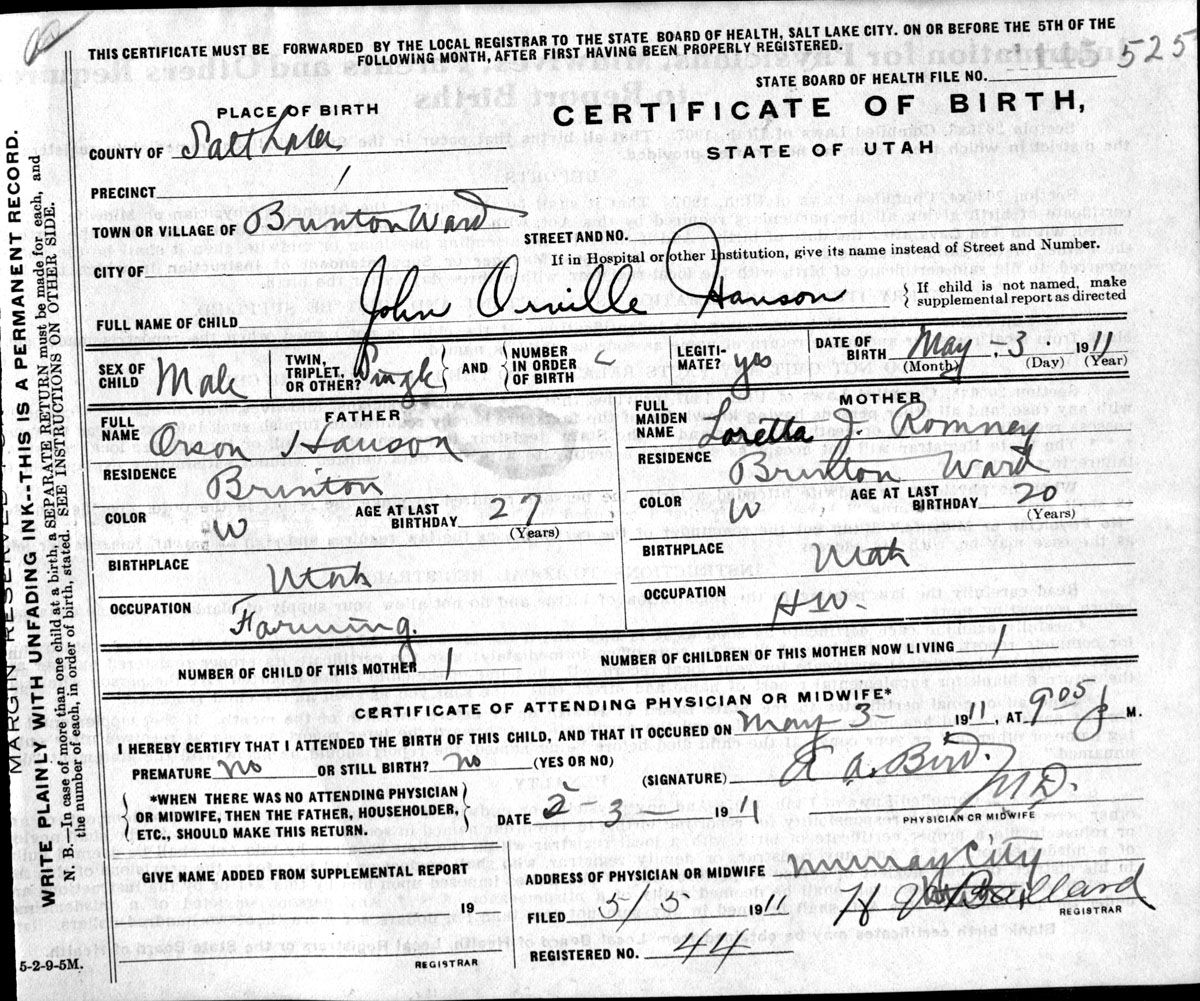 THIS CERTIFICATE MUST BE FORWARDED BY THE LOCAL REGISTRAR TO THE STATE BOARD OF HEALTH, SALT LAKE CITY. ON OR BEFORE THE 5TH OF THE
FOLLOWING MONTH, AFTER FIRST HAVING BEEN PROPERLY REGISTERED.
525
STATE BOARD OF HEALTH FILE NO.
PLACE OF BIRTH
CERTIFICATE OF BIRTH,
STATE OF UTAH
COUNTY OF Salt Lake
PRECINCT
TOWN OR VILLAGE OF Brinton Ward
STREET AND NO.
CITY OF
If in Hospital or other Institution, give its name instead of Street and Number.
FULL NAME OF CHILD John Orville Hanson { If child is not named, make
supplemental report as directed
SEX OF CHILD Male TWIN, TRIPLET, OR OTHER? Single } AND { NUMBER IN ORDER OF BIRTH LEGITI-MATE? yes DATE OF BIRTH May 3 1911
(Month) (Day) (Year)
FATHER
FULL NAME Orson Hanson
RESIDENCE Brinton
COLOR W AGE AT LAST BIRTHDAY 27
(Years)
BIRTHPLACE Utah
OCCUPATION Farming.
MOTHER
FULL MAIDEN NAME Loretta J. Romney
RESIDENCE Brinton Ward
COLOR W AGE AT LAST BIRTHDAY 20
(Years)
BIRTHPLACE Utah
OCCUPATION HW.
NUMBER OF CHILD OF THIS MOTHER 1 NUMBER OF CHILDREN OF THIS MOTHER NOW LIVING 1
CERTIFICATE OF ATTENDING PHYSICIAN OR MIDWIFE*
I HEREBY CERTIFY THAT I ATTENDED THE BIRTH OF THIS CHILD, AND THAT IT OCCURED ON May 3 1911, AT 9 05 M.
PREMATURE no OR STILL BIRTH? no (YES OR NO)
(SIGNATURE) A. Bird. M.D.
PHYSICIAN OR MIDWIFE
{ *WHEN THERE WAS NO ATTENDING PHYSICIAN
OR MIDWIFE, THEN THE FATHER, HOUSEHOLDER,
ETC., SHOULD MAKE THIS RETURN. }
DATE 3 1911
GIVE NAME ADDED FROM SUPPLEMENTAL REPORT
19
REGISTRAR
ADDRESS OF PHYSICIAN OR MIDWIFE Murray City
FILED 5/5 1911
REGISTRAR
REGISTERED NO. 44
5-2-9-5M.
MARGIN RESERVED
WRITE PLAINLY WITH UNFADING INK--THIS IS A PERMANENT RECORD.
B.—In case of more than one child at a birth, a SEPARATE RETURN must be made for each, and
the number of each, in order of birth, stated. SEE INSTRUCTIONS ON OTHER SIDE.